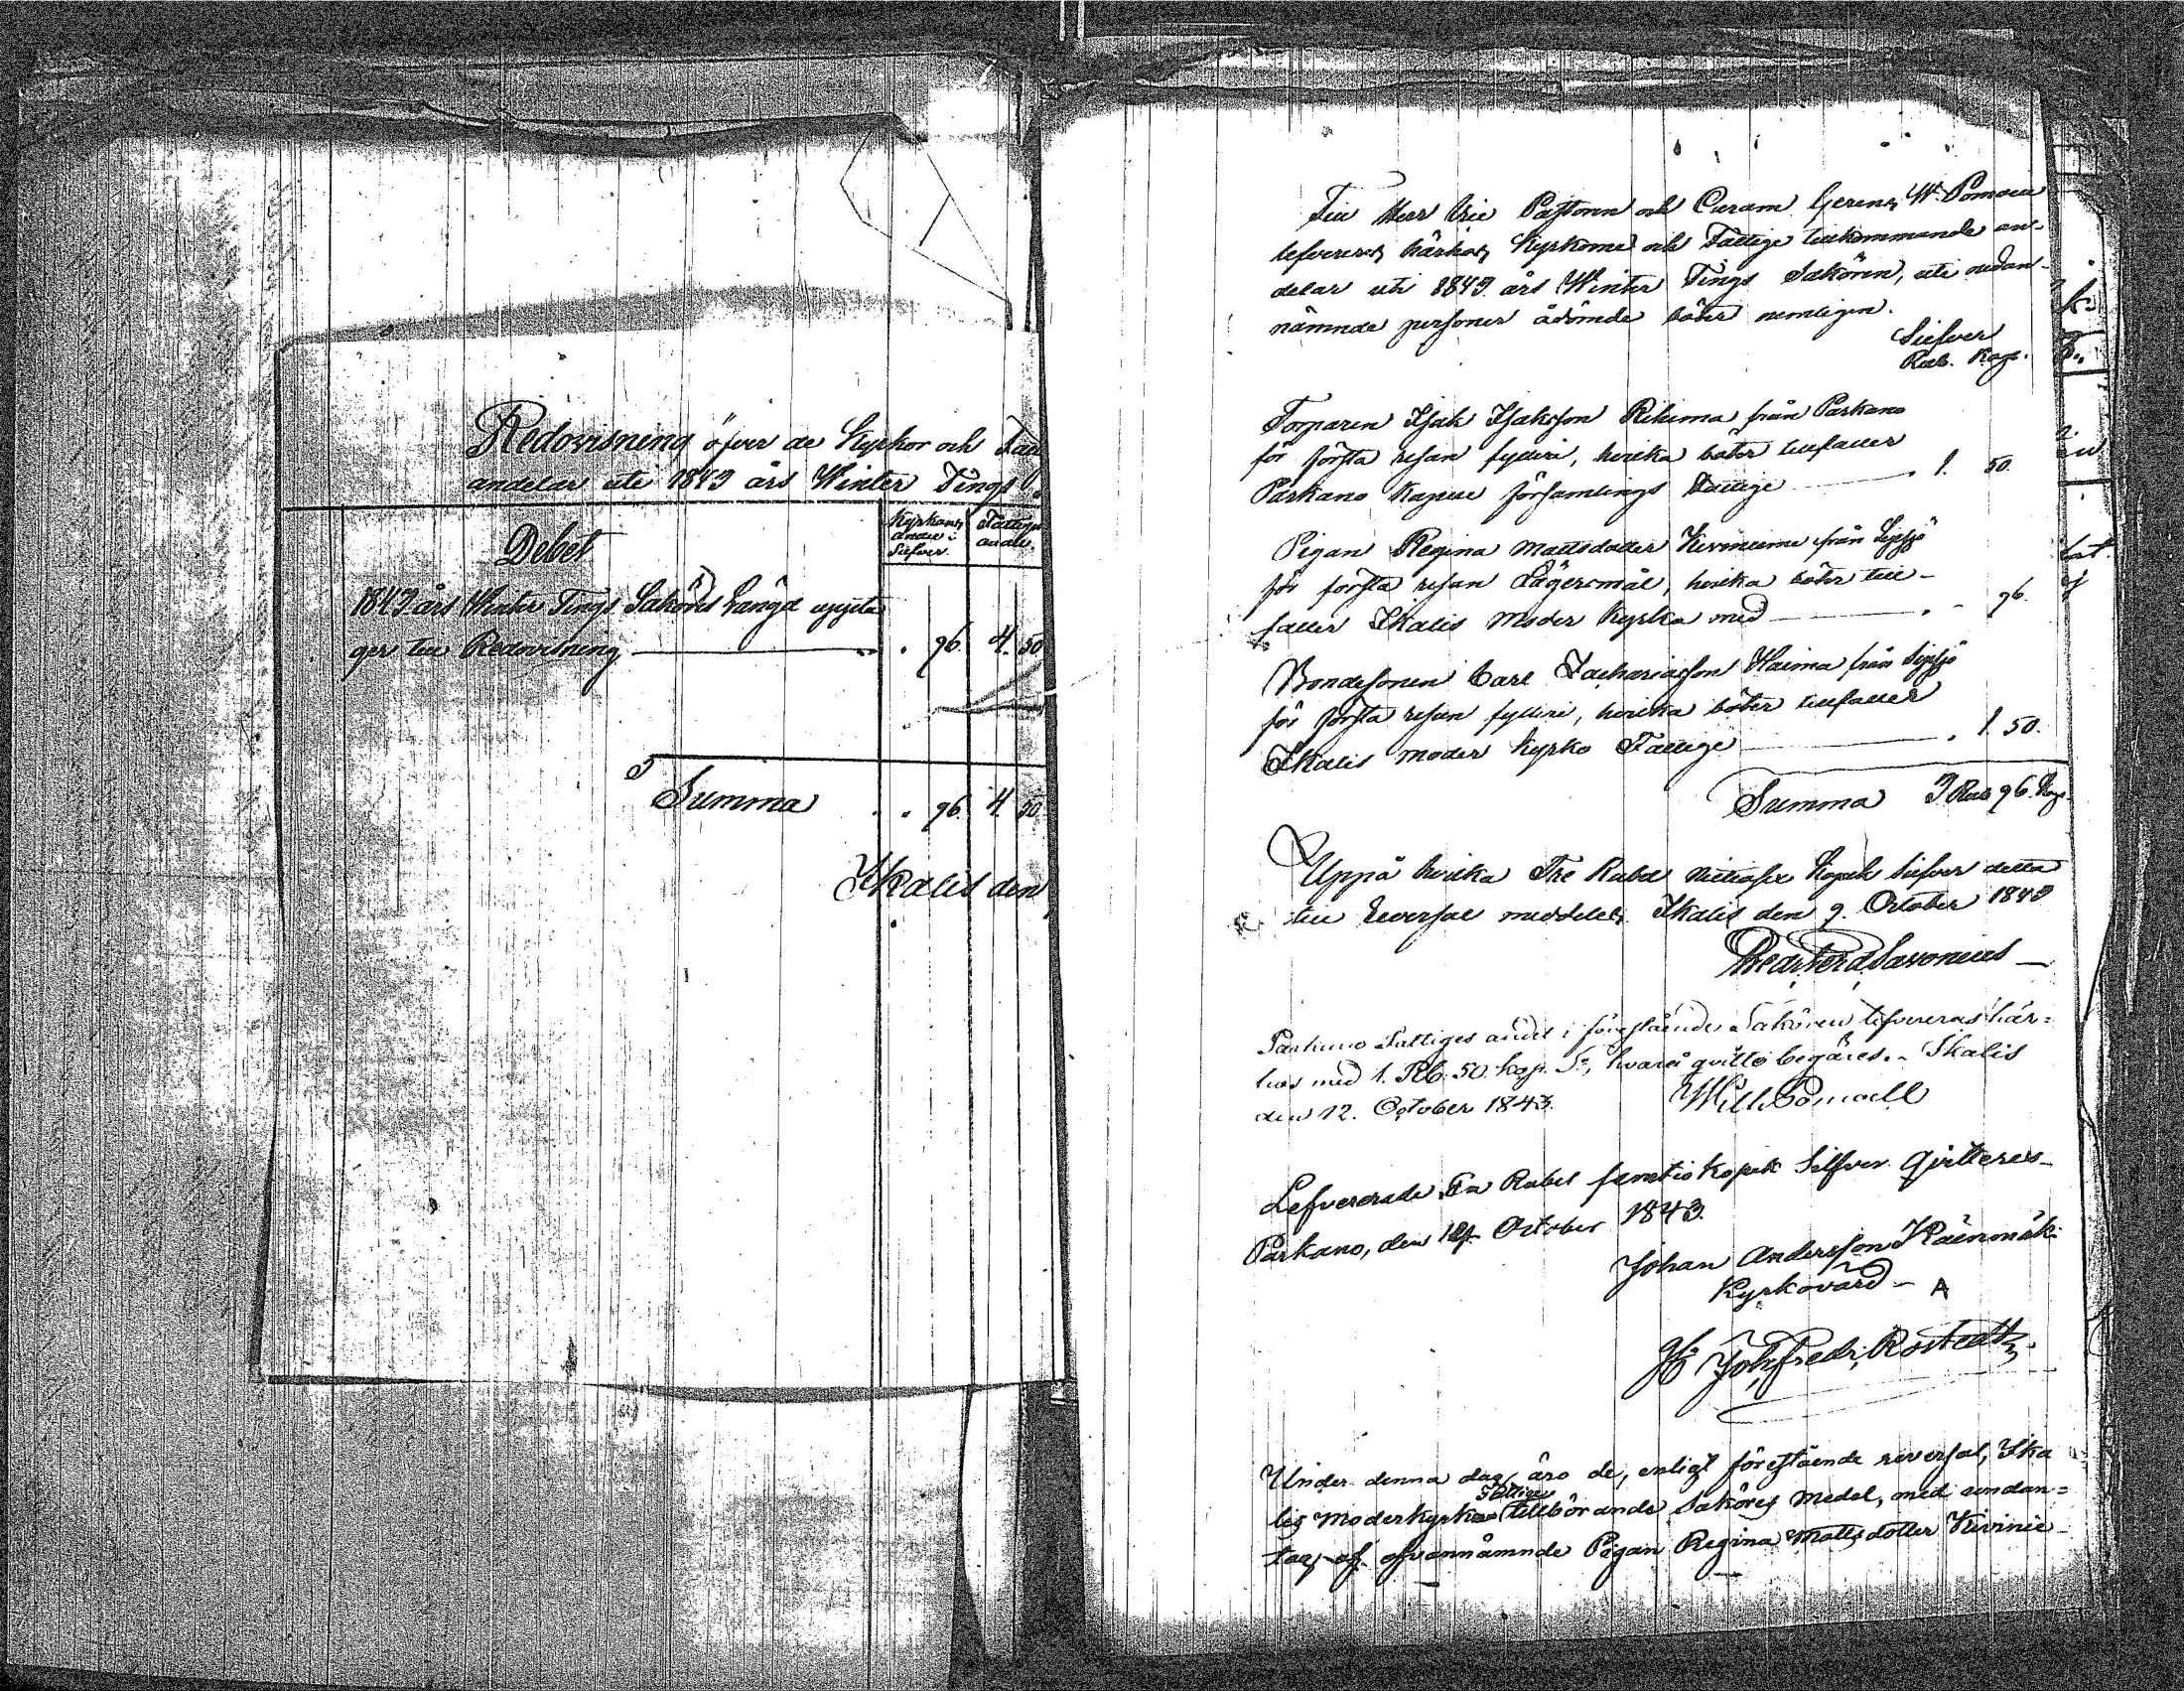 Redovisning öfver de Kyrkor och Fat
andelar uti 1843 års Winter Tings
Debet
Kyrkans andel i Silfver.
Fattiges andel.
1843 års Winter Tings Saköres Längd uppta
ger till Redovisning . 96. 4. 50
Summa . . 96. 4. 50.
Ikalis den
Till Herr Vice Pastorn och Curam Gerens W. Pomoell
lefvereras härhos Kyrkorne och Fattige tillkommande an-
delar uti 1843 års Winter Tings Sakören, uti nedan-
nämnde personer ådömde böter nemligen.
Silfver
Rub. Kop.
Torparen Isak Isaksson Rihima från Parkano
för första resan fylleri, hvilka böter tillfaller
Parkano Kapell församlings Fattige . 1. 50.
Pigan Regina Mattsdotter Kiviniemi från Sipsjö
för första resan Lägersmål, hvilka böter till-
faller Ikalis Moder Kyrka med . - 96.
Bondesonen Carl Zachariasson Haima från Sipsjö
för första resan fylleri, hvilka böter tillfaller
Ikalis moder Kyrko Fattige . 1. 50.
Summa 3 Rub 96. Kop.
Uppå hvilka Tre Rubel Nittiosex Kopek Silfver detta
till Reversal meddelas. Ikalis den 9. October 1843
Savonius
Parkano Fattiges andel i förestående Sakören lefvereras här-
hos med 1. Rb. 50. kop. S., hvarå qvitto begäres. Ikalis
den 12. October 1843. Wilh. Pomoell
Lefvererade En Rubel femtio kopek Silfver qvitteras
Parkano, den October 1843.
Johan Andersson
Kyrkovärd
Joh. Fredr. Rostedt
Under denna dag äro de, enligt förestående reversal, Ika
lis Moderkyrkas Fattige tillhörande Saköres Medel, med undan-
tag af ofvannämnde Pigan Regina Mattsdotter Kivinie